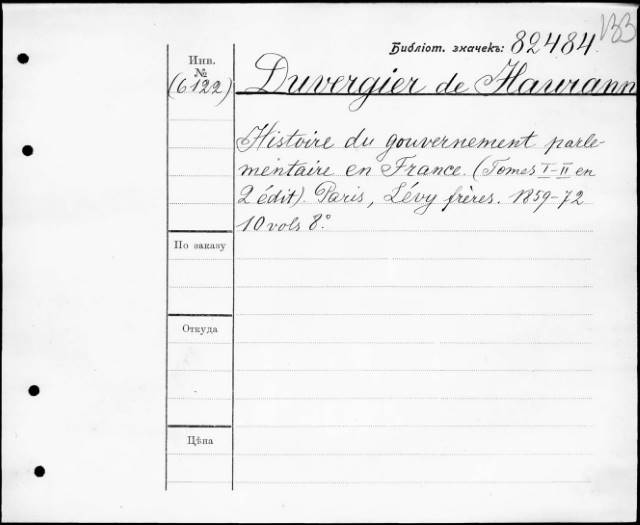 133
Библіот. значекъ: 82484.
Инв.
№
(6122)
Duvergier de Haurann
Histoire du gouvernement parle-
mentaire en France. (Tomes I-II en
2 édit). Paris, Lévy frères. 1859-72
10 vols 8°.
По заказу
Откуда
Цѣна